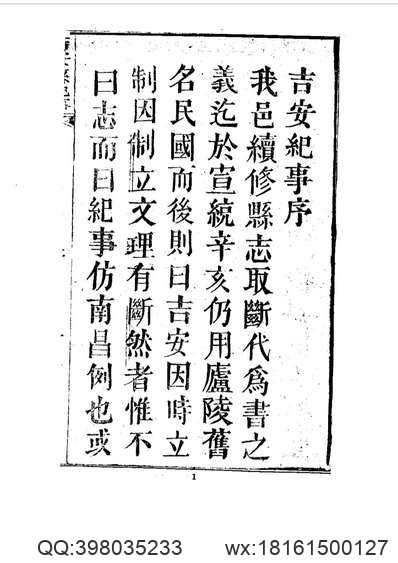 吉安紀事序
我邑續修縣志取斷代爲書之
義迄於宣統辛亥仍用廬陵舊
名民國而後則曰吉安因時立
制因制立文理有斷然者惟不
曰志而曰紀事仿南昌例也或
1
QQ:398035233 wx:18161500127